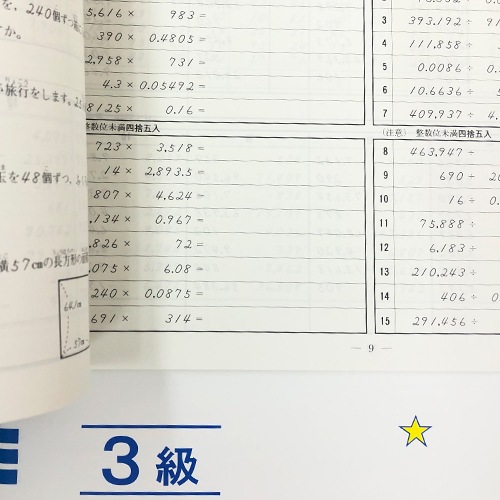 を、240個ずつ
すか。
旅行をします。
玉を48個ずつ、
横57cmの長方形の
64/m
57cm
5,616 × 983 =
390 × 0.4805 =
2,958 × 731 =
4.3 × 0.05492 =
8125 × 0.16 =
整数位未満四捨五入
723 × 3.518 =
14 × 2,893.5 =
807 × 4.624 =
,134 × 0.967 =
.826 × 72 =
.075 × 6.08 =
240 × 0.0875 =
691 × 314 =
3 393.192 ÷ 91
4 111,858 ÷
5 0.0086 ÷
6 10.6636 ÷ 5
7 409,937 ÷ 4.
(注意) 整数位未満四捨五入
8 463,947 ÷
9 690 ÷ 20
10 16 ÷ 0.
11 75.888 ÷
12 6.183 ÷
13 210,243 ÷
14 406 ÷ 0.
15 291,456 ÷
— 9 —
3級